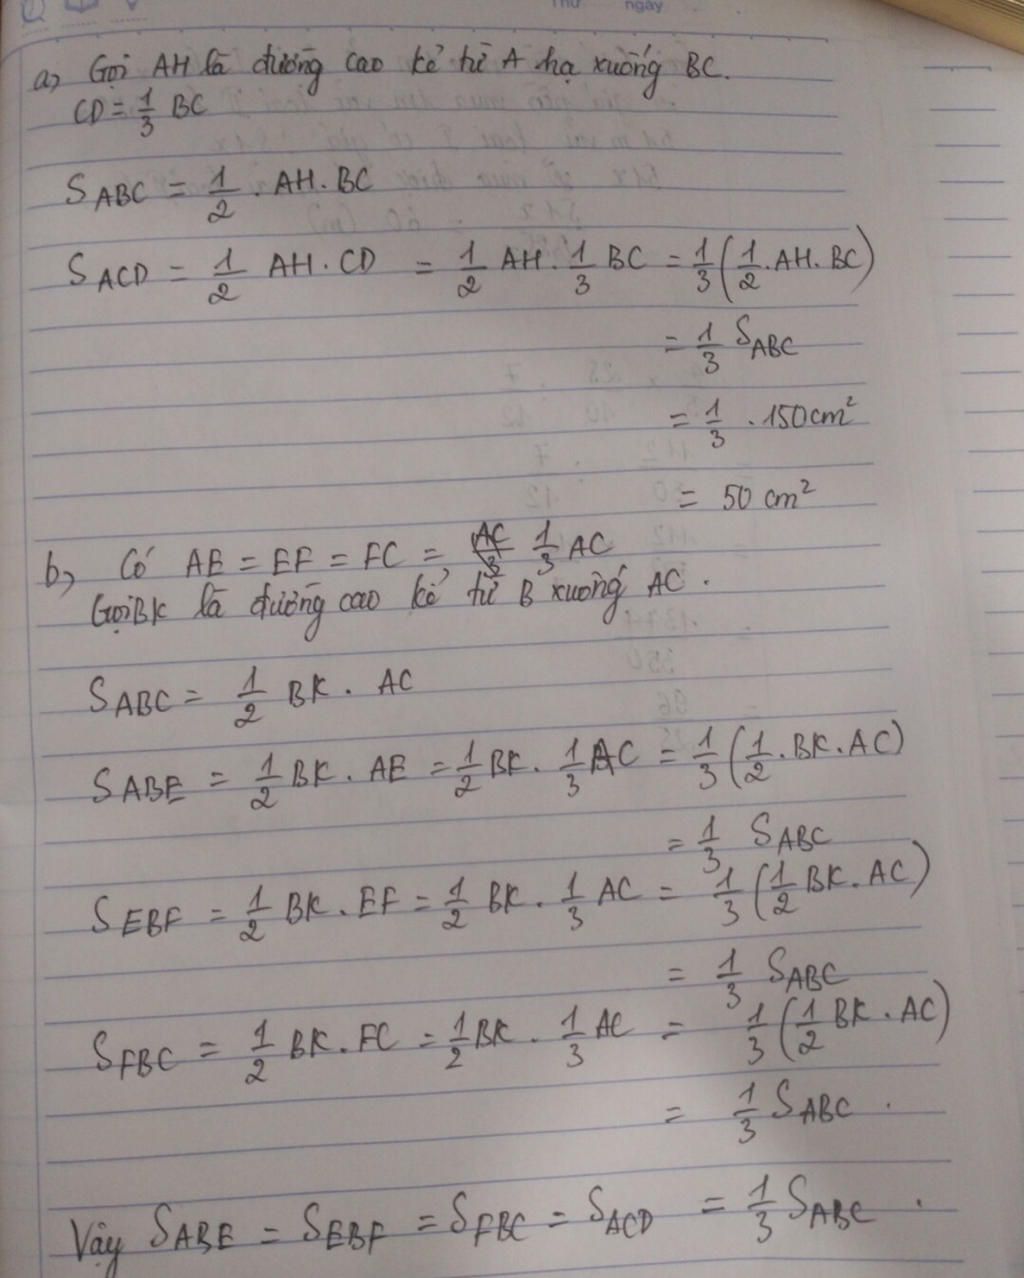 Thứ ngày
a, Gọi AH là đường cao kẻ từ A hạ xuống BC.
CD = 1/3 BC
S_ABC = 1/2 . AH . BC
S_ACD = 1/2 AH . CD = 1/2 AH . 1/3 BC = 1/3 (1/2 . AH . BC)
= 1/3 S_ABC
= 1/3 . 150cm²
= 50 cm²
b, Có AE = EF = FC = 1/3 AC
Gọi BK là đường cao kẻ từ B xuống AC .
S_ABC = 1/2 BK . AC
S_ABE = 1/2 BK . AE = 1/2 BK . 1/3 AC = 1/3 (1/2 . BK . AC)
= 1/3 S_ABC
S_EBF = 1/2 BK . EF = 1/2 BK . 1/3 AC = 1/3 (1/2 BK . AC)
= 1/3 S_ABC
S_FBC = 1/2 BK . FC = 1/2 BK . 1/3 AC = 1/3 (1/2 BK . AC)
= 1/3 S_ABC .
Vậy S_ABE = S_EBF = S_FBC = S_ACD = 1/3 S_ABC .